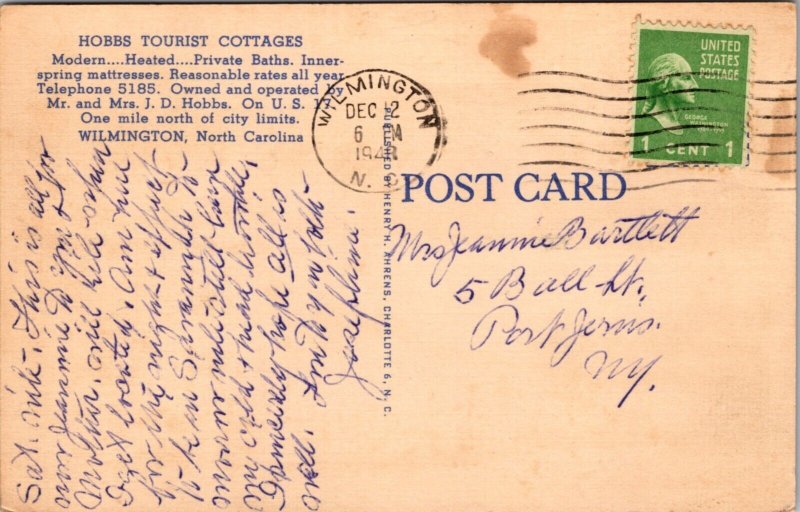 HOBBS TOURIST COTTAGES
Modern....Heated....Private Baths. Inner-
spring mattresses. Reasonable rates all year.
Telephone 5185. Owned and operated by
Mr. and Mrs. J. D. Hobbs. On U. S. 17
One mile north of city limits.
WILMINGTON, North Carolina
WILMINGTON
DEC 12
6 PM
194
N. C.
UNITED
STATES
POSTAGE
GEORGE
WASHINGTON
1 CENT 1
POST CARD
PUBLISHED BY HENRY H. AHRENS, CHARLOTTE 6, N. C.
Mrs Jeannie Bartlett
5 Ball St.
Port Jervis.
NY.
Sat. nite. This is all for
now Jeannie to you & for
Mother. will write when
I get located. Am here
for the night & expect
to be in Savannah to-
morrow nite still have
my cold & head
Sincerely hope all is
well. Love to you both -
Josephine.